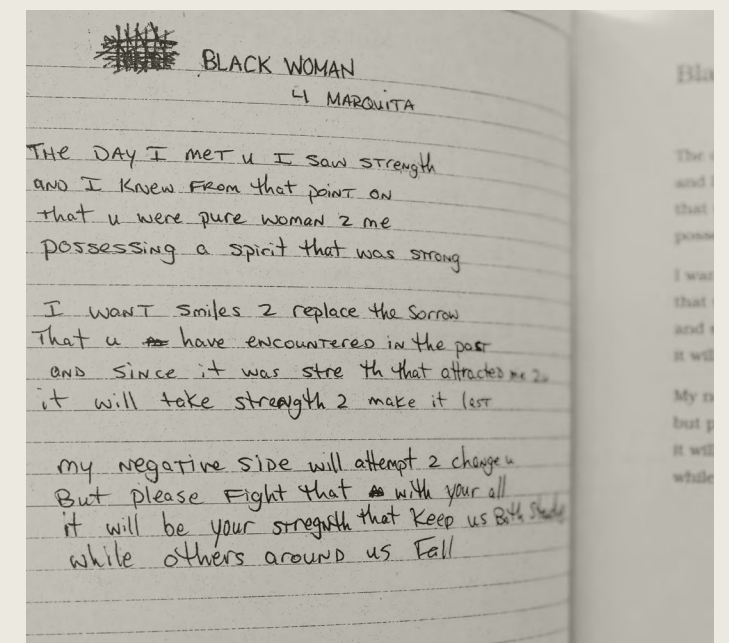 BLACK WOMAN
4 MARQUITA
THE DAY I MET U I SAW STRENGTH
AND I KNEW FROM that POINT ON
that u were pure WOMAN 2 me
possessing a spirit that was strong
I WANT smiles 2 replace the sorrow
That u have ENCOUNTERED IN the past
AND SINCE it was stre th that attracted me 2u
it will take strength 2 make it last
my Negative SIDE will attempt 2 change u
But please Fight that with your all
it will be your stregnth that Keep us Both
while others around us Fall
Bla
The
and I
that
posse
I wan
that
and
it will
My n
but p
it will
while